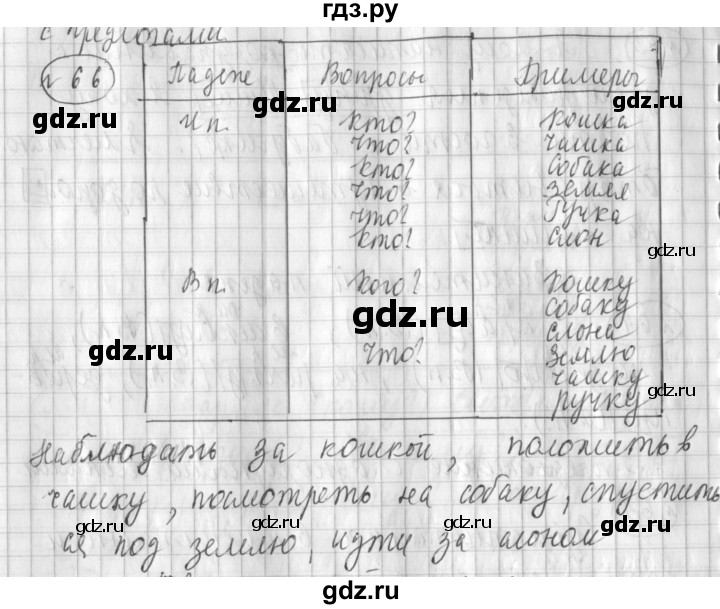 гдз.ру
с предлогами
№ 66 Падеж Вопросы Примеры
И п. кто? кошка
что? чашка
кто? собака
что? земля
что? ручка
кто? слон
В п. кого? кошку
собаку
слона
что? землю
чашку
ручку
наблюдать за кошкой, положить в
чашку, посмотреть на собаку, спустить
ся под землю, идти за слоном
gdz.ru
gdz.ru
gdz.ru
gdz.ru
gdz.ru
gdz.ru
gdz.ru
gdz.ru
gdz.ru
gdz.ru
gdz.ru
gdz.ru